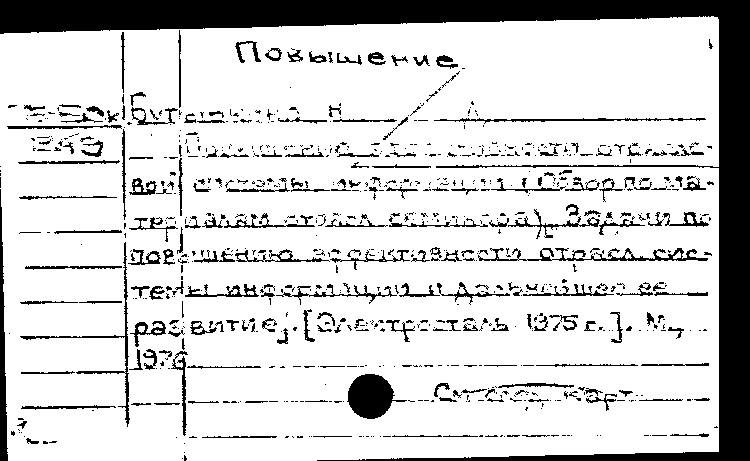 Повышение
Повышение эффективности отрасле-
вой системы информации (Обзор по ма-
териалам отрасл. семинара). Задачи по
повышению эффективности отрасл. сис-
темы информации и дальнейшее ее
развитие; [Электросталь 1975 г.]. М.,
1976
См. след. карт.